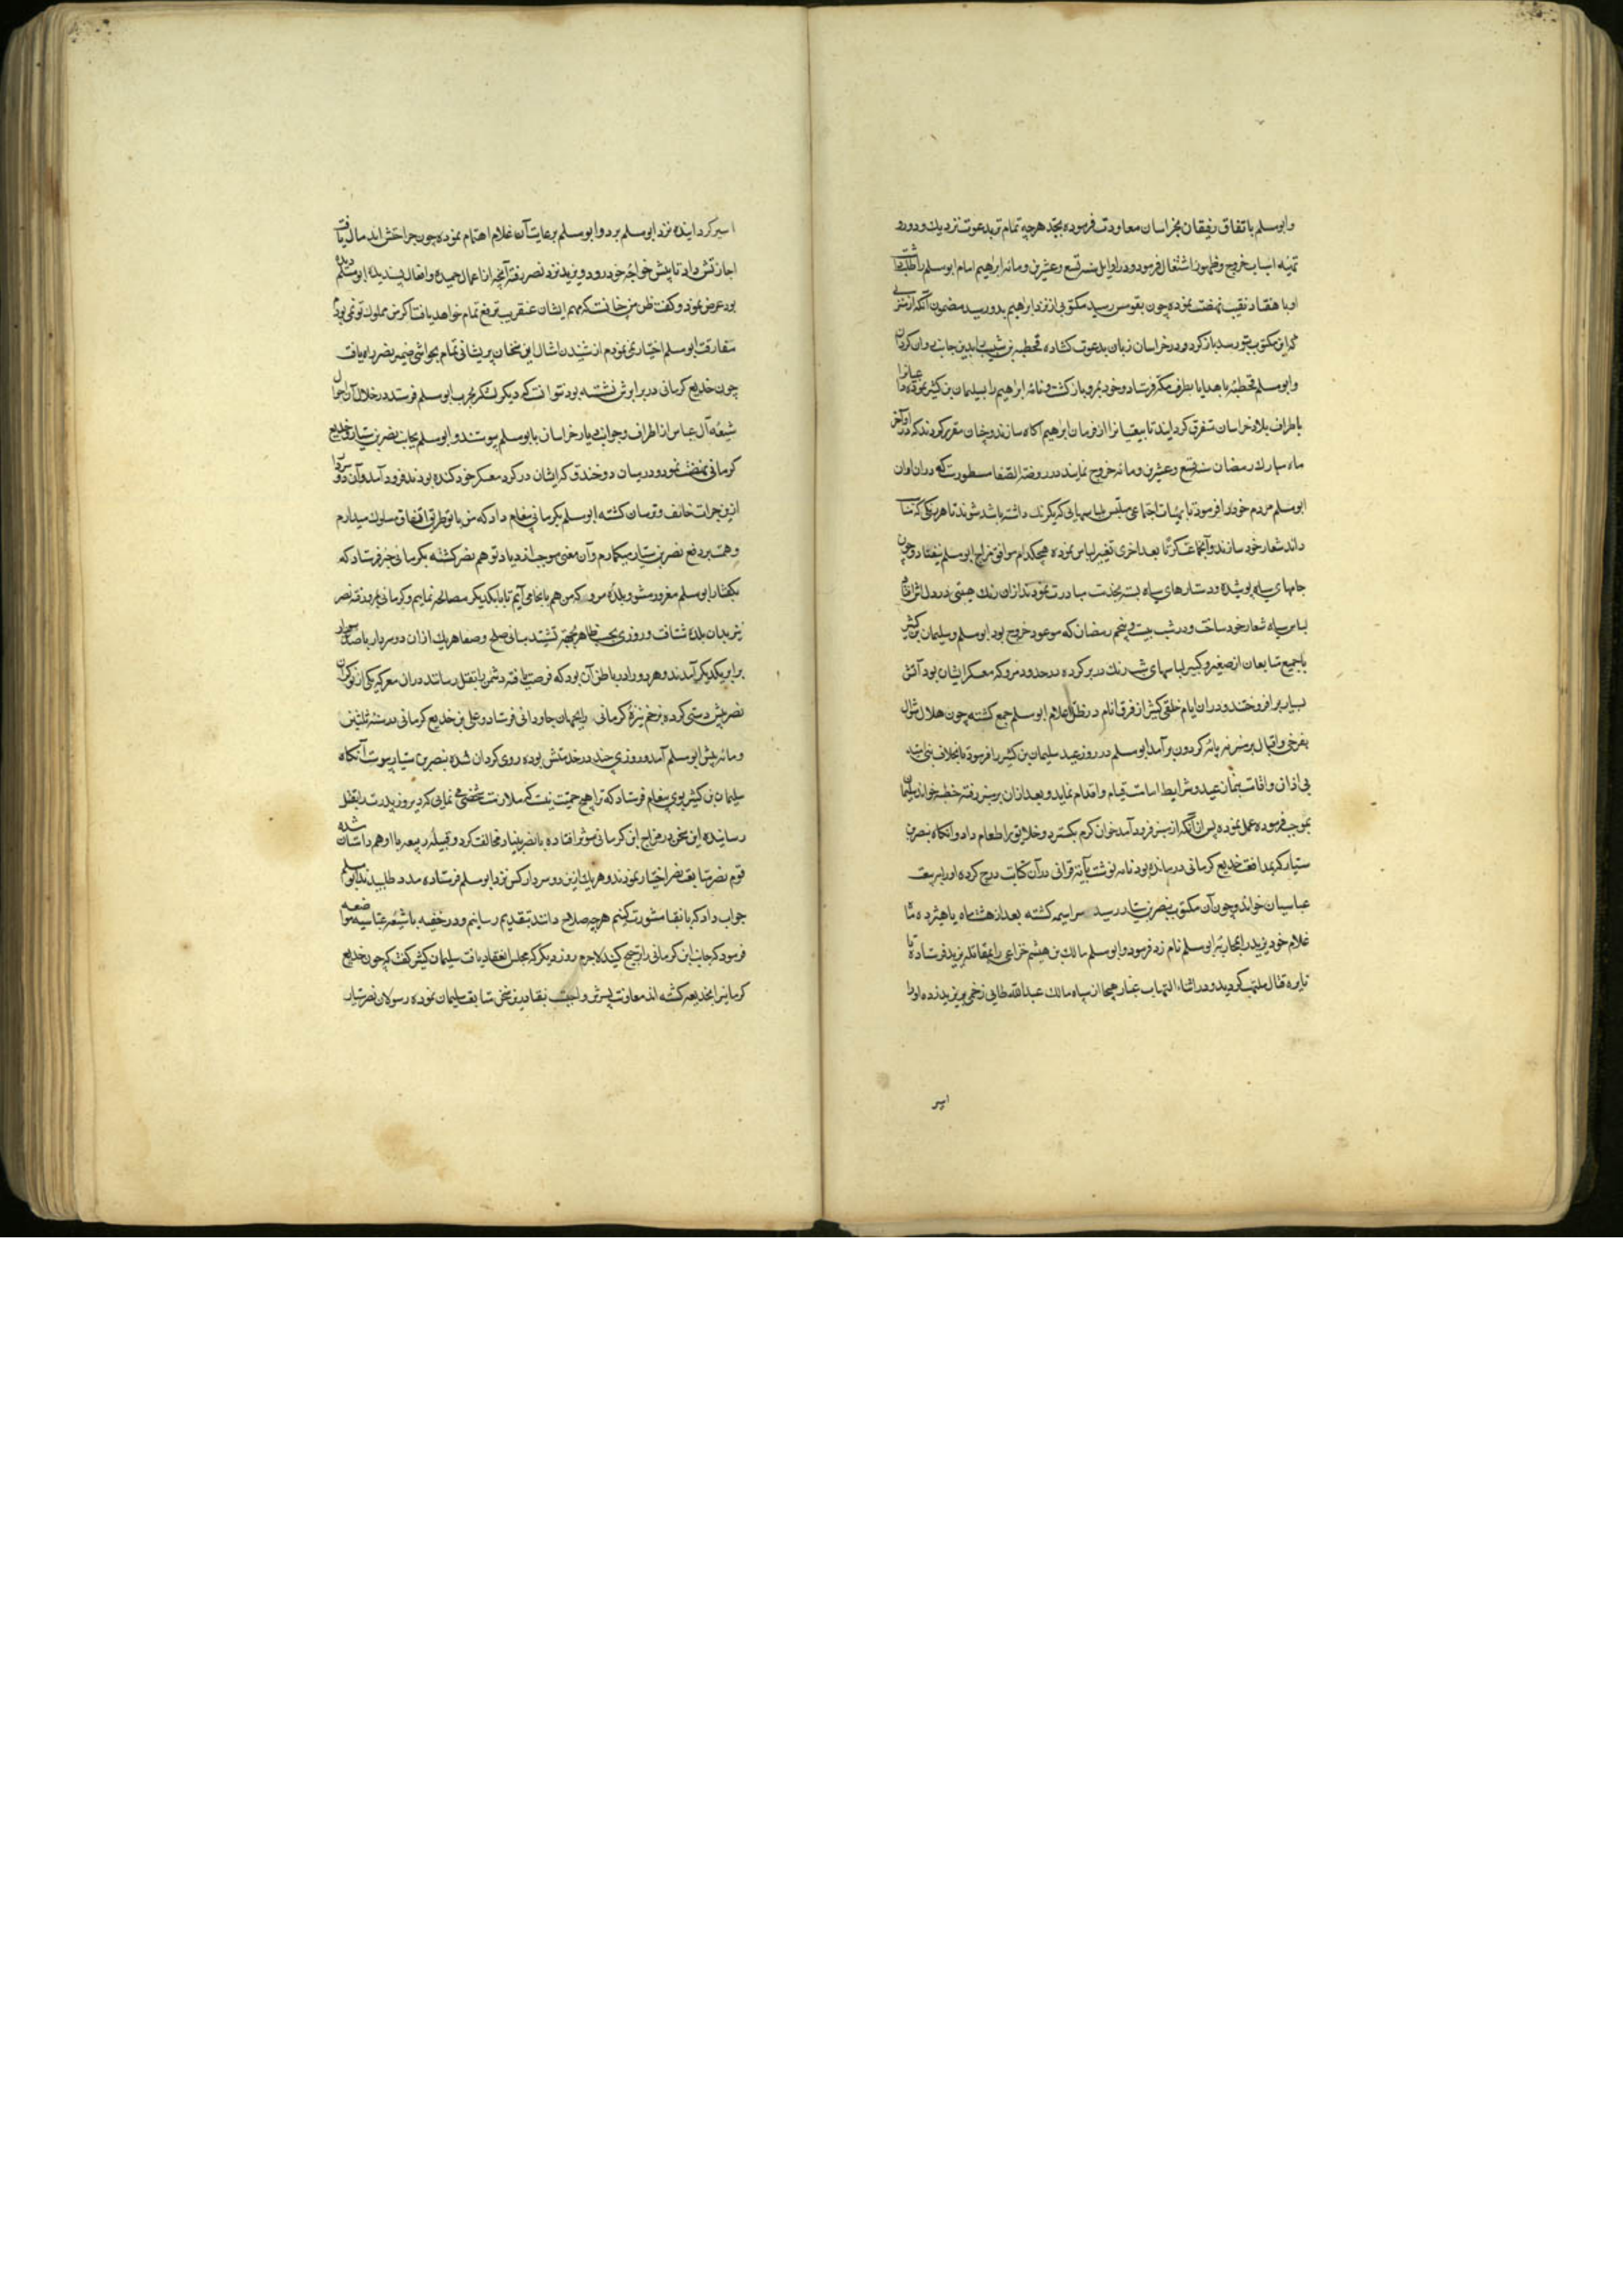 وابومسلم باتفاق رفیقان بخراسان معاودت فرموده بجد هرچه تمام تر بدعوت نزدیك ودور و
تهیه اسباب خروج وظهور اشتغال فرمود ودر اوایل سنه تسع وعشرین ومائه ابراهیم امام ابومسلم را طلب داشت
او با هفتاد نقیب نهضت نموده چون بقومس رسید مکتوبی از نزد ابراهیم بدو رسید مضمون آنکه از منزلی
که این مکتوب بتو رسد باز کرد ودر خراسان زبان بدعوت کشاده قحطبه بن شبیب را بدین جانب روان کردان
وابومسلم قحطبه با هدایا بطرف مکه فرستاد وخود بمرو باز کشت ونامه ابراهیم را بسلیمان بن کثیر نموده
باطراف بلاد خراسان متفرق کردانیدند تا بیعتیانرا از فرمان ابراهیم آکاه سازند وچنان مقرر کردند که در اواخر
ماه مبارك رمضان سنه تسع وعشرین ومائه خروج نمایند در روضة الصفا مسطورست که دران اوان
ابومسلم مردم خود را فرمود تا بهیات اجتماعی متلبس بلباسهایی که یکرنك داشته باشد شوند تا هر یکی که مناسب
داند شعار خود سازند وآنجماعت مکرر تا بعد اخری تغییر لباس نموده هیچکدام موافق مزاج ابومسلم نیفتاد وچون
جامهای سیاه پوشیده ودستارهای سیاه بسته بخدمت مبادرت نمودند ازان رنك هیبتی در دل
لباس سیاه شعار خود ساخت ودر شب بیست وپنجم رمضان که موعود خروج بود ابومسلم وسلیمان بن کثیر
با جمیع متابعان از صغیر وکبیر لباسهای شب رنك در بر کرده در حدود مرو که معسکر ایشان بود آتش
بسیار برافروختند ودران ایام خلقی کثیر از فرق انام در ظل اعلام ابومسلم جمع کشته چون هلال شوال
بفرخی واقبال بر منبر نه پایه کردون برآمد ابومسلم در روز عید سلیمان بن کثیر را فرمود تا بخلاف بنی امیه
بی اذان واقامت بنماز عید وشرایط امامت قیام واقدام نماید وبعد ازان بر منبر رفته خطبه خواند سلیمان
بموجب فرموده عمل نموده پس ازانکه از منبر فرود آمد خوان کرم بکسترد وخلایق را طعام داد وانکاه بنصر بن
سیار که بمدافعت خدیع کرمانی درمانده بود نامه نوشت وآیة قرآنی در آن کتابت درج کرده او را ببیعت
عباسیان خواند وچون آن مکتوب بنصر بن سیار رسید سراسیمه کشته بعد از هشت ماه یا هژده ماه
غلام خود یزید را بمحاربه ابومسلم نام زد فرمود وابومسلم مالك بن هیثم خزاعی را بمقاتله یزید فرستاده تا
نایره قتال ملتهب کردید ودر اثناء التهاب غبار هیجا از سپاه مالك عبدالله طایی زخمی بر یزید زده او را
اسیر
اسیر کردانیده نزد ابومسلم برد وابومسلم برعایت آن غلام اهتمام نموده چون جراحتش اندمال یافت
اجازتش داد تا پیش خواجه خود رود ویزید نزد نصر رفته آنچه از اعمال حمیده وافعال پسندیده ابومسلم دیده
بود عرض نمود وکفت ظن من چنانست که مهم ایشان عنقریب ترفع تمام خواهد یافت اکر من مملوك تو نمی بودم
مفارقت ابومسلم اختیار نمی نمودم از شنیدن امثال این سخنان پریشانی تمام بحواشی ضمیر نصر راه یافت
چون خدیع کرمانی در برابرش نشسته بود نتوانست که دیکر لشکر بحرب ابومسلم فرستد در خلال آن احوال
شیعه آل عباس از اطراف وجوانب دیار خراسان بابومسلم پیوستند وابومسلم بجانب نصر بن سیار وخدیع
کرمانی نهضت نمود ودر میان دو خندق که ایشان در کرد معسکر خود کنده بودند فرود آمد وآن دو سردار
ازین جرات خایف وترسان کشته ابومسلم بکرمانی پیغام داد که من با تو طریق اتفاق مسلوك میدارم
وهمت بر دفع نصر بن سیار میکمارم وآن معنی موجب ازدیاد توهم نصر کشته بکرمانی خبر فرستاد که
بکفتار ابومسلم مغرور مشو وبلده مرو رو که من هم بانجا می آیم تا با یکدیکر مصالحه نماییم وکرمانی بمرو رفته نصر
نیز بدان بلده شتافت وروزی بحسب ظاهر بجهة تشیید مبانی صلح وصفا هر یك ازان دو سردار با صد سوار
برابر یکدیکر آمدند وهر دو را در باطن آن بود که فرصت یافته دشمن را بقتل رسانند دران معرکه یکی از نوکران
نصر پیش دستی کرده بزخم نیزه کرمانی را بجهان جاودانی فرستاد وعلی بن خدیع کرمانی در سنه ثلثین
ومائه پیش ابومسلم آمد وروزی چند در خدمتش بوده روی کردان شده بنصر بن سیار پیوست آنکاه
سلیمان بن کثیر بوی پیغام فرستاد که ترا هیچ حمیت نیست که ملازمت شخصی می نمایی که دیروز پدرت را بقتل
رسانیده این سخن در مزاج ابن کرمانی موثر افتاده با نصر بنیاد مخالفت کرد وقبیله ربیعه با او همداستان شده
قوم نصر متابعت نصر اختیار نمودند وهر یك ازین دو سردار کس نزد ابومسلم فرستاده مدد طلبیدند ابومسلم
جواب داد که با نقبا مشورت کنیم هرچه صلاح دانند بتقدیم رسانیم ودر خفیه با شیعه عباسیه مواضعه
فرمود که جانب ابن کرمانی را ترجیح کنند لاجرم روز دیکر که مجلس انعقاد یافت سلیمان کثیر کفت که چون خدیع
کرمانیرا بخدیعه کشته اند معاونت پسرش واجبست نقبا درین سخن متابعت سلیمان نموده رسولان نصر سیار